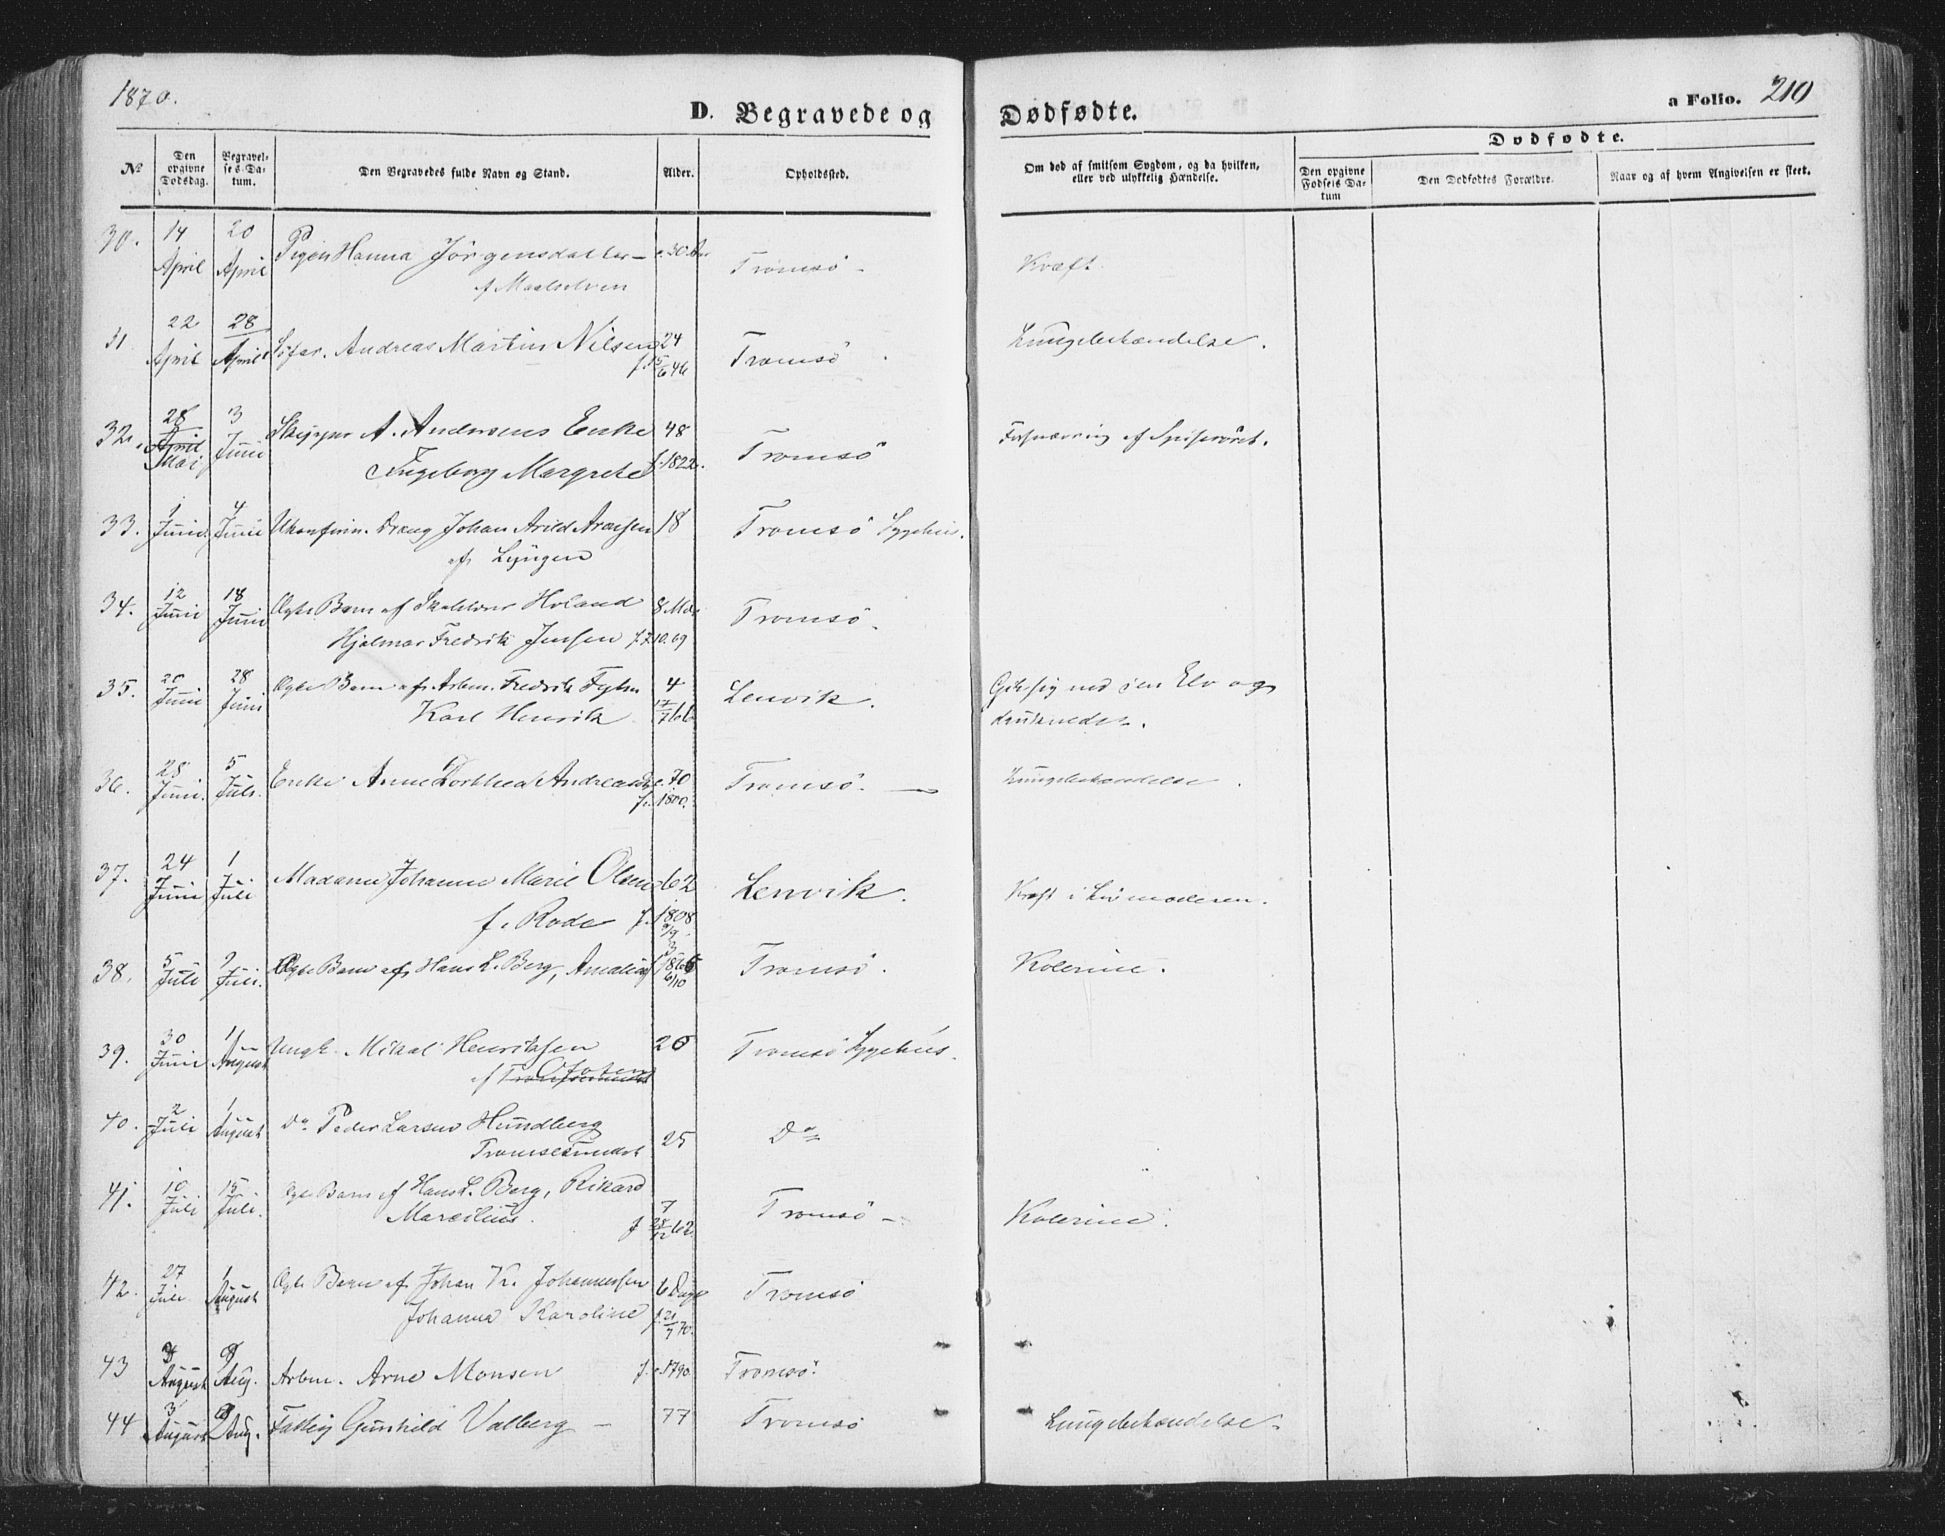 1870.
D. Begravede og Dødfødte.
a Folio. 210
Dødfødte.
No
Den opgivne Dødsdag.
Begravelses-Datum.
Den Begravedes fulde Navn og Stand.
Alder.
Opholdssted.
Om død af smitsom Sygdom, og da hvilken, eller ved ulykkelig Hændelse.
Den opgivne Fødsels Datum
Den Dødfødtes Forældre.
Naar og af hvem Angivelsen er skeet.
30. 14 April 20 April Pigen Hanna Jörgensdatter - 30 Aar Tromsö - Kræft.
af Maalselven
31 22 April 28 April Andreas Martin Nilsen 24 Tromsö Lungebetændelse.
f. 15/6 46
32. 28 April Mai 3 Juni Skipper A. Andersens Enke 48 Tromsö Forsnævring af Spiseröret.
Ingeborg Margrete f. 1822.
33. 1 Juni 4 Juni Ukonfirm. Dreng Johan Arild Aronsen 18 Tromsö Sygehus.
af Lyngen
34. 12 Juni 18 Juni Ægte Barn af Holand 8 Md. Tromsö.
Hjalmar Fredrik Jensen f. 7.10.69
35. 20 Juni 28 Juni Ægte Barn af Arbm. Fredrik 4 Lenvik. Gik sig ned i en Elv og
Karl Henrik 17/7 66 druknede.
36. 28 Juni. 5 Juli. Enke Anne Dorthea Andreasd. c. 70 Tromsö. Lungebetændelse.
f. c. 1800.
37. 24 Juni 1 Juli Madame Johanne Marie Olsen 62 Lenvik. Kræft i Livmoderen.
f. Rode f. 1808
38. 5 Juli Juli. Ægte Barn af Hans L. Berg, 3 Tromsö. Kolerine.
6/10
39. 30 Juni 1 August Ungk. Mikal Henriksen 26 Tromsö Sygehus.
af Tromsösundet Ofoten
40. 2 Juli 1 August Do Peder Larsen Hundberg Do
Tromsösundet 25
41. 10 Juli 15 Juli. Ægte Barn af Hans L. Berg, Rikard 7 Tromsö - Kolerine.
Marselius. f. 28/12 62.
42. 27 Juli 1 August Ægte Barn af Johan K. Johannessen 6 Dage Tromsö
Johanna Karoline f. 21/7 70.
43 August 8 Aug. Arbm. Arne Monsen f. c. 1790 Tromsö.
44 3 August Aug. Fattig Gunhild Valberg - 77 Tromsö Lungebetændelse.